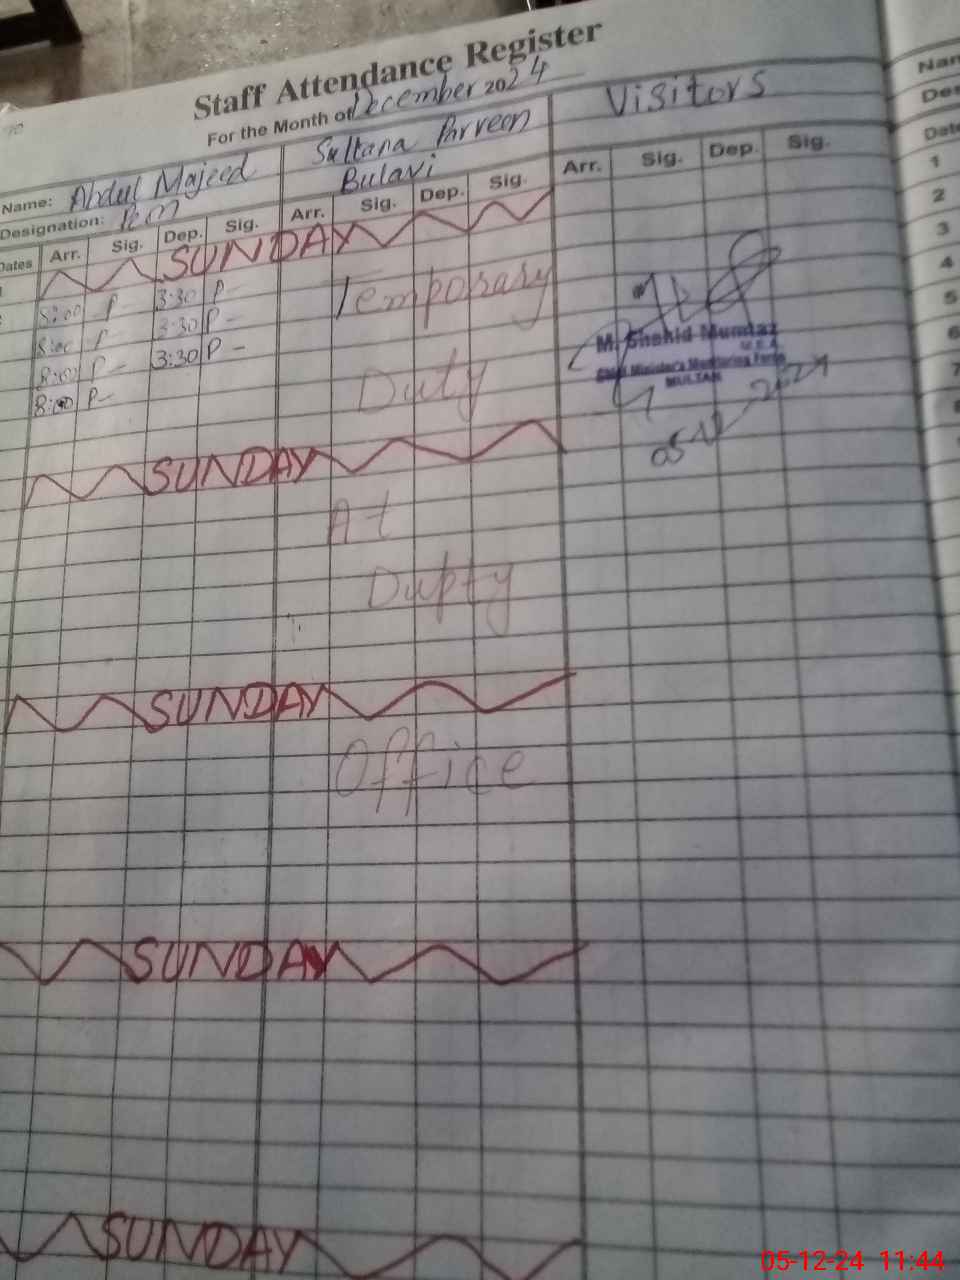 Staff Attendance Register
For the Month of December 2024
Name: Abdul Majeed
Sultana Parveen
Visitors
Designation:
Bulavi
Dates Arr. Sig. Dep. Sig. Arr. Sig. Dep. Sig. Arr. Sig. Dep. Sig.
SUNDAY
8:00 P 3:30 P
8:00 P 3:30 P
8:00 P 3:30 P
8:00 P
Temporary
Duty
M. Shahid Mumtaz
M.E.A
Chief Minister's Monitoring Force
MULTAN
SUNDAY
At
Dupty
SUNDAY
Office
SUNDAY
SUNDAY
Nan
Des
Date
1
2
3
4
5
6
7
05-12-24 11:44